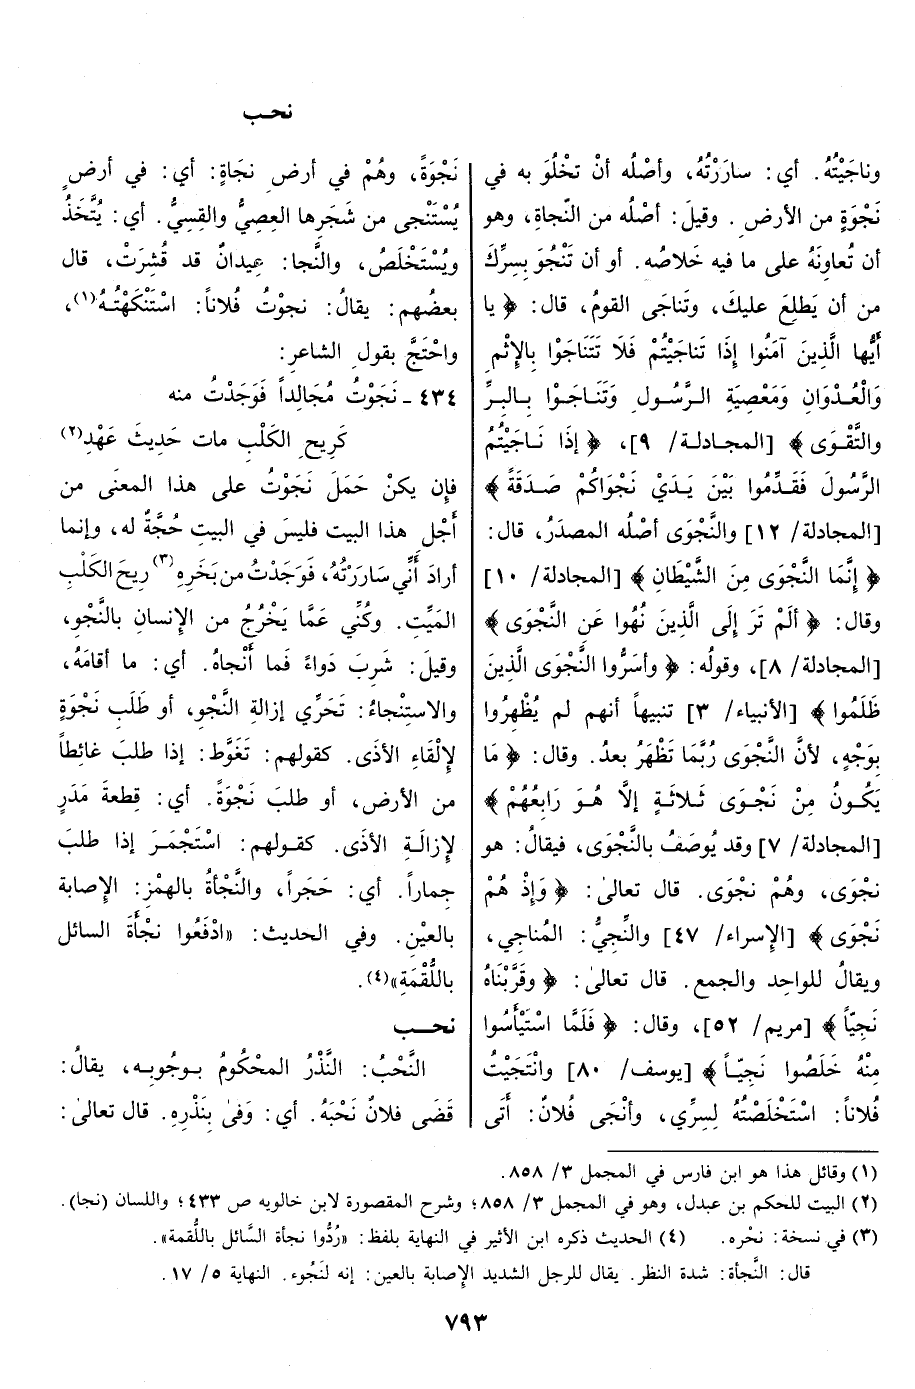 نحـب
وناجَيْتُهُ. أي: سارَرْتُهُ، وأصْلُه أنْ تخْلُوَ به في
نَجْوَةٍ من الأرضِ. وقيلَ: أصْلُه من النّجاةِ، وهو
أن تُعاوِنَهُ على ما فيه خَلاصُه. أو أن تَنْجُوَ بسِرِّكَ
من أن يَطلِعَ عليكَ، وتَناجَى القومُ، قال: ﴿ يا
أَيُّها الَّذِينَ آمَنُوا إِذَا تَناجَيْتُمْ فَلَا تَتَنَاجَوْا بِالإِثْمِ
وَالْعُدْوَانِ وَمَعْصِيَةِ الرَّسُولِ وَتَنَاجَوْا بِالبِرِّ
والتَّقْوَى ﴾ [المجادلة/ ٩]، ﴿ إذَا نَاجَيْتُمُ
الرَّسُولَ فَقَدِّمُوا بَيْنَ يَدَيْ نَجْوَاكُمْ صَدَقَةً ﴾
[المجادلة/ ١٢] والنَّجْوَى أصْلُه المصدَرُ، قال:
﴿ إِنَّمَا النَّجْوَى مِنَ الشَّيْطَانِ ﴾ [المجادلة/ ١٠]
وقال: ﴿ أَلَمْ تَرَ إِلَى الَّذِينَ نُهُوا عَنِ النَّجْوَى ﴾
[المجادلة/ ٨]، وقولُه: ﴿ وأسَرُّوا النَّجْوَى الَّذِينَ
ظَلَمُوا ﴾ [الأنبياء/ ٣] تنبيهاً أنهم لم يُظْهِرُوا
بوَجْهٍ، لأنَّ النَّجْوَى رُبَّمَا تَظْهَرُ بعدُ. وقال: ﴿ مَا
يَكُونُ مِنْ نَجْوَى ثَلاثَةٍ إلَّا هُوَ رَابِعُهُمْ ﴾
[المجادلة/ ٧] وقد يُوصَفُ بالنَّجْوَى، فيقالُ: هو
نجْوَى، وهُمْ نجْوَى. قال تعالىٰ: ﴿ وَإِذْ هُمْ
نَجْوَى ﴾ [الإسراء/ ٤٧] والنَّجِيُّ: المُناجِي،
ويقالُ للواحِدِ والجمعِ. قال تعالىٰ: ﴿ وقَرَّبْنَاهُ
نَجِيّاً ﴾ [مريم/ ٥٢]، وقال: ﴿ فَلَمَّا اسْتَيْأَسُوا
مِنْهُ خَلَصُوا نَجِيّاً ﴾ [يوسف/ ٨٠] وانْتَجَيْتُ
فُلاناً: اسْتَخْلَصْتُهُ لِسِرِّي، وأنْجَى فُلانٌ: أتَى
نَجْوَةً، وهُمْ في أرضِ نجَاةٍ: أي: في أرضٍ
يُسْتَنْجى من شَجَرِها العِصِيُّ والقِسِيُّ. أي: يُتَّخَذُ
ويُسْتَخْلَصُ، والنَّجا: عِيدانٌ قد قُشِرَتْ، قال
بعضُهم: يقالُ: نجوْتُ فُلاناً: اسْتَنْكَهْتُهُ(١)،
واحْتَجَّ بقولِ الشاعرِ:
٤٣٤ ـ نَجَوْتُ مُجَالِداً فَوَجَدْتُ منه
كَرِيحِ الكَلْبِ مات حَدِيثَ عَهْدِ(٢)
فإن يكنْ حَمَلَ نَجَوْتُ على هذا المعنَى من
أجْلِ هذا البيت فليسَ في البيتِ حُجَّةٌ له، وإنما
أرادَ أنِّي سَارَرْتُهُ، فَوَجَدْتُ من بَخَرِهِ(٣) ريحَ الكَلْبِ
المَيِّتِ. وكُنِّي عَمَّا يَخْرُجُ من الإنسانِ بالنَّجْوِ،
وقيلَ: شَرِبَ دَواءً فَما أَنْجاهُ. أي: ما أقامَهُ،
والاستِنْجاءُ: تَحَرِّي إزالةِ النَّجْوِ، أو طَلَبِ نَجْوَةٍ
لِإلْقَاءِ الأذَى. كقولهم: تَغَوَّطَ: إذا طلبَ غائِطاً
من الأرض، أو طلبَ نَجْوَةً. أي: قِطعةَ مَدَرٍ
لإزالَةِ الأذَى. كقولهم: اسْتَجْمَرَ إذا طلبَ
جماراً. أي: حَجَراً، والنَّجْأةُ بالهمْزِ: الإصابة
بالعيْنِ. وفي الحديث: «ادْفَعُوا نجْأَةَ السائل
باللُّقْمَةِ»(٤).
نحـب
النَّحْبُ: النَّذْرُ المحْكُومُ بوجُوبِه، يقالُ:
قَضَى فلانٌ نَحْبَهُ. أي: وَفىٰ بِنَذْرِهِ. قال تعالىٰ:
(١) وقائل هذا هو ابن فارس في المجمل ٣/ ٨٥٨.
(٢) البيت للحكم بن عبدل، وهو في المجمل ٣/ ٨٥٨؛ وشرح المقصورة لابن خالويه ص ٤٣٣؛ واللسان (نجا).
(٣) في نسخة: نخْره. (٤) الحديث ذكره ابن الأثير في النهاية بلفظ: «رُدُّوا نجأة السَّائل باللُّقمة».
قال: النَّجأة: شدة النظر. يقال للرجل الشديد الإصابة بالعين: إنه لنَجُوء. النهاية ٥/ ١٧.
٧٩٣